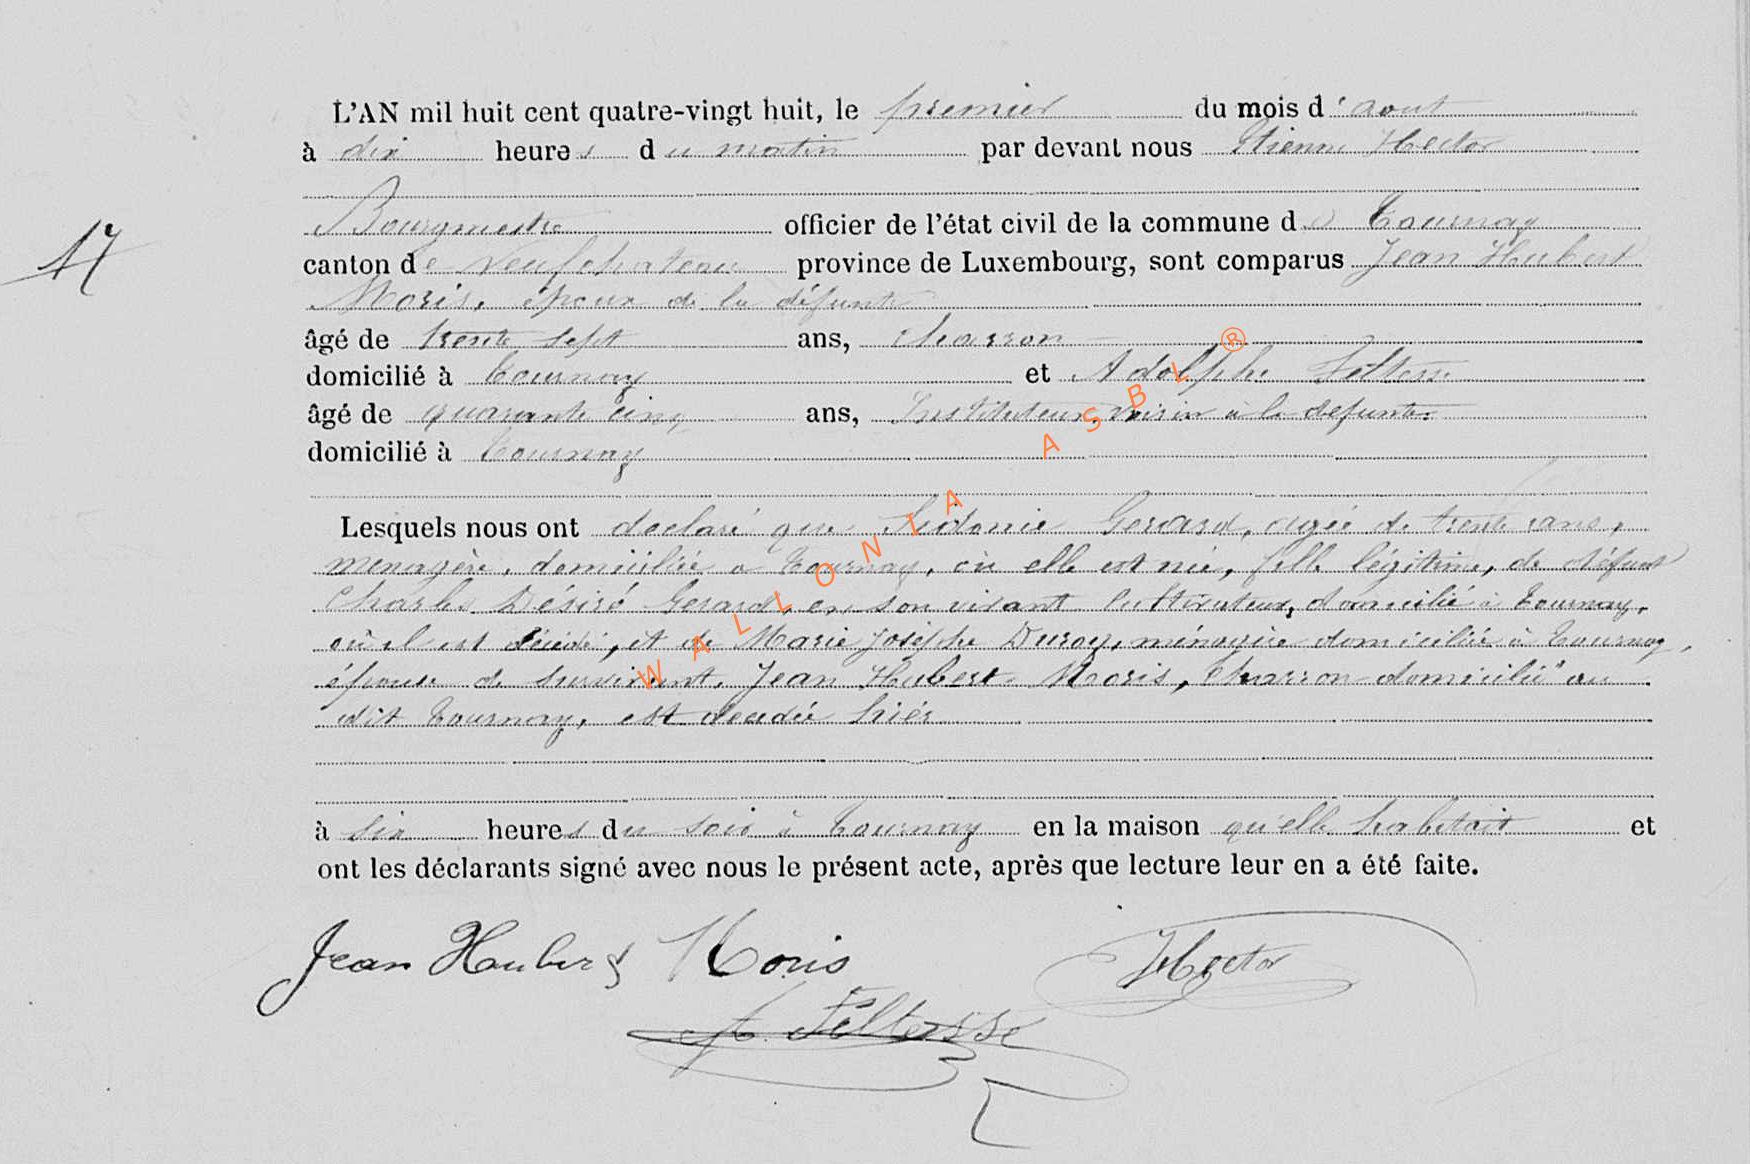 L'AN mil huit cent quatre-vingt huit, le premier du mois d'aout
à dix heures du matin par devant nous Etienne Hector
Bourgmestre officier de l'état civil de la commune de Tournay
17
canton de Neufchateau province de Luxembourg, sont comparus Jean Hubert
Moris, époux de la défunte
âgé de trente sept ans, charron
domicilié à Tournay et Adolphe Feltesse
âgé de quarante cinq ans, Instituteur, voisin à la defunte.
domicilié à Tournay
Lesquels nous ont declaré que Sidonie Gerard, agée de trente ans,
menagère, domiciliée a Tournay, où elle est née, fille légitime, de défunt
Charles Désiré Gerard, en son vivant Cultivateur, domicilié à Tournay,
où il est décédé, et de Marie Josèphe Duroy, ménagère domiciliée à Tournay,
épouse de survivant, Jean Hubert Moris, charron domicilié au
dit Tournay, est decedée hier
à six heures du soir à Tournay en la maison qu'elle habitait et
ont les déclarants signé avec nous le présent acte, après que lecture leur en a été faite.
Jean Houbert Moris Hector
A. Feltesse
WALLONIA ASBL ®